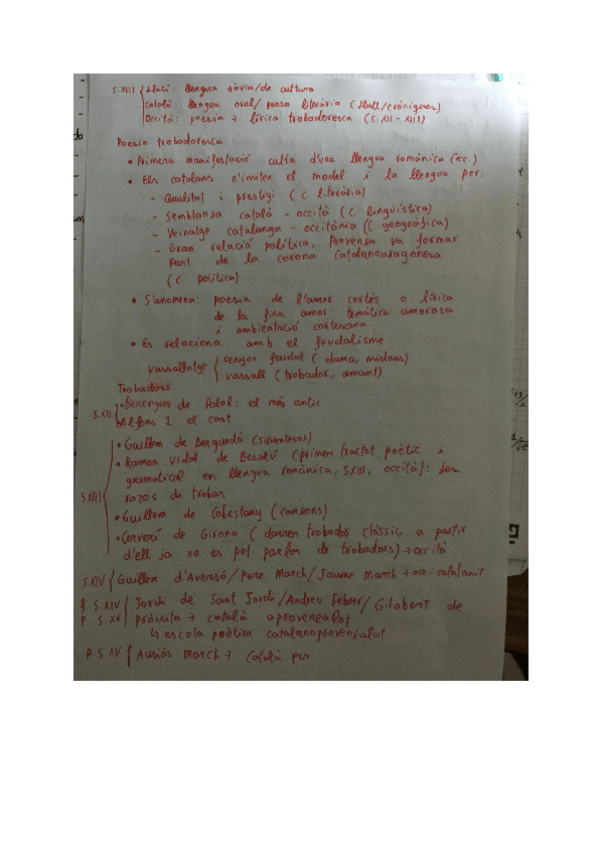 S.XIII { Llatí: llengua sàvia/de cultura
Català: llengua oral/prosa literària (Llull/cròniques)
Occità: poesia → lírica trobadoresca (s.XII - XIII)
Poesia trobadoresca
• Primera manifestació culta d'una llengua romànica (occ.)
• Els catalans n'imiten el model i la llengua per:
- Qualitat i prestigi (c. literària)
- Semblansa català - occità (c. lingüística)
- Veïnatge catalunya - occitània (c. geogràfica)
- Gran relació política, Provensa va formar
part de la corona catalanoaragonesa
(c. política)
• S'anomena: poesia de l'amor cortès o lírica
de la fina amor: temàtica amorosa
i ambientació cortesana
• Es relaciona amb el feudalisme:
Vassallatge { senyor feudal (dama, midons)
vassall (trobador, amant)
Trobadors
S.XII { • Berenguer de Palol: el més antic
Alfons I el cast
S.XIII { • Guillem de Berguedà (sirventesos)
• Ramon Vidal de Besalú (primer tractat poètic i
gramatical en llengua romànica, S.XIII, occità): Las
razos de trobar
• Guillem de Cabestany (cansons)
• Cerverí de Girona (darrer trobador clàssic, a partir
d'ell ja no es pot parlar de trobadors) → occità
S.XIV { Guillem d'Aversó/Pere March/Jaume March → occ. catalanit
f S.XIV { Jordi de Sant Jordi/Andreu Febrer/Gilabert de
p S.XV pròixita → català aprovensalat
↳ escola poètica catalanoprovensalat
P.S.XV { Ausiàs March → català pur